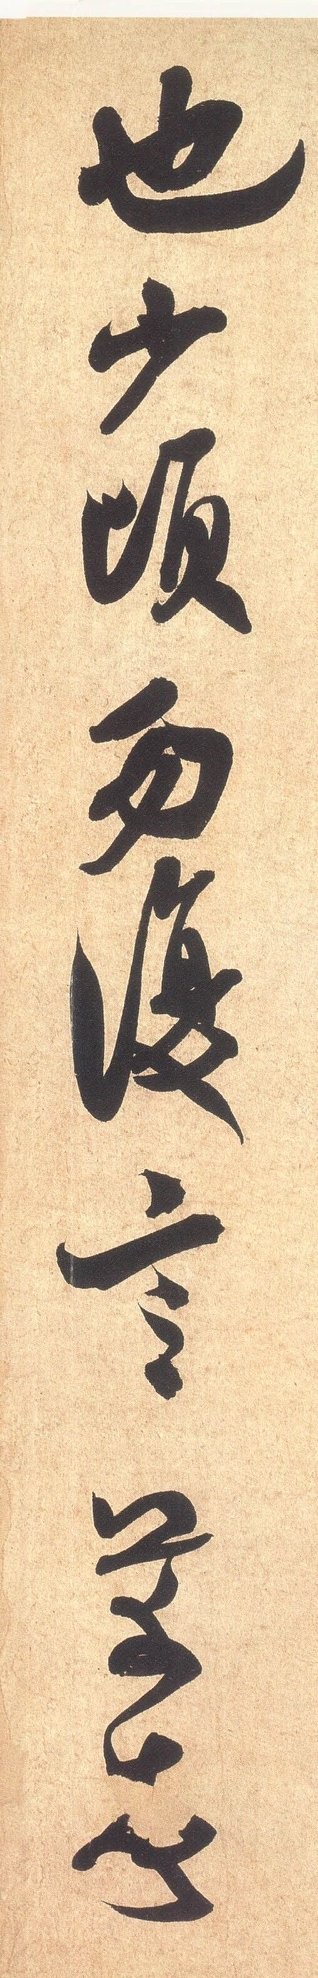 也少頃勿復言